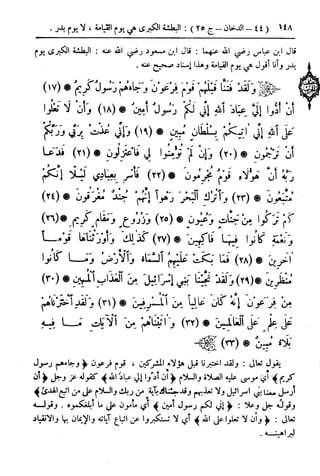 ١٤٨ (٤٤ - الدخان - ج ٢٥) : البطشة الكبرى هي يوم القيامة ، لا يوم بدر .
قال ابن عباس رضي الله عنهما : قال ابن مسعود رضي الله عنه : البطشة الكبرى يوم
بدر وأنا أقول هي يوم القيامة وهذا إسناد صحيح عنه .
وَلَقَدْ فَتَنَّا قَبْلَهُمْ قَوْمَ فِرْعَوْنَ وَجَاءَهُمْ رَسُولٌ كَرِيمٌ * (١٧)
أَنْ أَدُّوا إِلَيَّ عِبَادَ اللَّهِ إِنِّي لَكُمْ رَسُولٌ أَمِينٌ * (١٨) وَأَنْ لَا تَعْلُوا
عَلَى اللَّهِ إِنِّي آتِيكُمْ بِسُلْطَانٍ مُبِينٍ * (١٩) وَإِنِّي عُذْتُ بِرَبِّي وَرَبِّكُمْ
أَنْ تَرْجُمُونِ * (٢٠) وَإِنْ لَمْ تُؤْمِنُوا لِي فَاعْتَزِلُونِ * (٢١) فَدَعَا
رَبَّهُ أَنَّ هَؤُلَاءِ قَوْمٌ مُجْرِمُونَ * (٢٢) فَأَسْرِ بِعِبَادِي لَيْلًا إِنَّكُمْ
مُتَّبَعُونَ * (٢٣) وَاتْرُكِ الْبَحْرَ رَهْوًا إِنَّهُمْ جُنْدٌ مُغْرَقُونَ * (٢٤)
كَمْ تَرَكُوا مِنْ جَنَّاتٍ وَعُيُونٍ * (٢٥) وَزُرُوعٍ وَمَقَامٍ كَرِيمٍ * (٢٦)
وَنَعْمَةٍ كَانُوا فِيهَا فَاكِهِينَ * (٢٧) كَذَلِكَ وَأَوْرَثْنَاهَا قَوْمًا
آخَرِينَ * (٢٨) فَمَا بَكَتْ عَلَيْهِمُ السَّمَاءُ وَالْأَرْضُ وَمَا كَانُوا
مُنْظَرِينَ * (٢٩) وَلَقَدْ نَجَّيْنَا بَنِي إِسْرَائِيلَ مِنَ الْعَذَابِ الْمُهِينِ * (٣٠)
مِنْ فِرْعَوْنَ إِنَّهُ كَانَ عَالِيًا مِنَ الْمُسْرِفِينَ * (٣١) وَلَقَدِ اخْتَرْنَاهُمْ
عَلَى عِلْمٍ عَلَى الْعَالَمِينَ * (٣٢) وَآتَيْنَاهُمْ مِنَ الْآيَاتِ مَا فِيهِ
بَلَاءٌ مُبِينٌ * (٣٣)
يقول تعالى : ولقد اختبرنا قبل هؤلاء المشركين ، قوم فرعون ﴿ وجاءهم رسول
كريم ﴾ أي موسى عليه الصلاة والسلام ﴿ أن أدوا إلي عباد الله ﴾ كقوله عز وجل ﴿ أن
أرسل معنا بني اسرائيل ولا تعذبهم وقد جئناك بآية من ربك والسلام على من اتبع الهدى ﴾
وقوله جل وعلا : ﴿ إني لكم رسول أمين ﴾ أي مأمون على ما أبلغكموه . وقوله
تعالى : ﴿ وأن لا تعلوا على الله ﴾ أي لا تستكبروا عن اتباع آياته والإيمان بها والانقياد
لبراهينه .